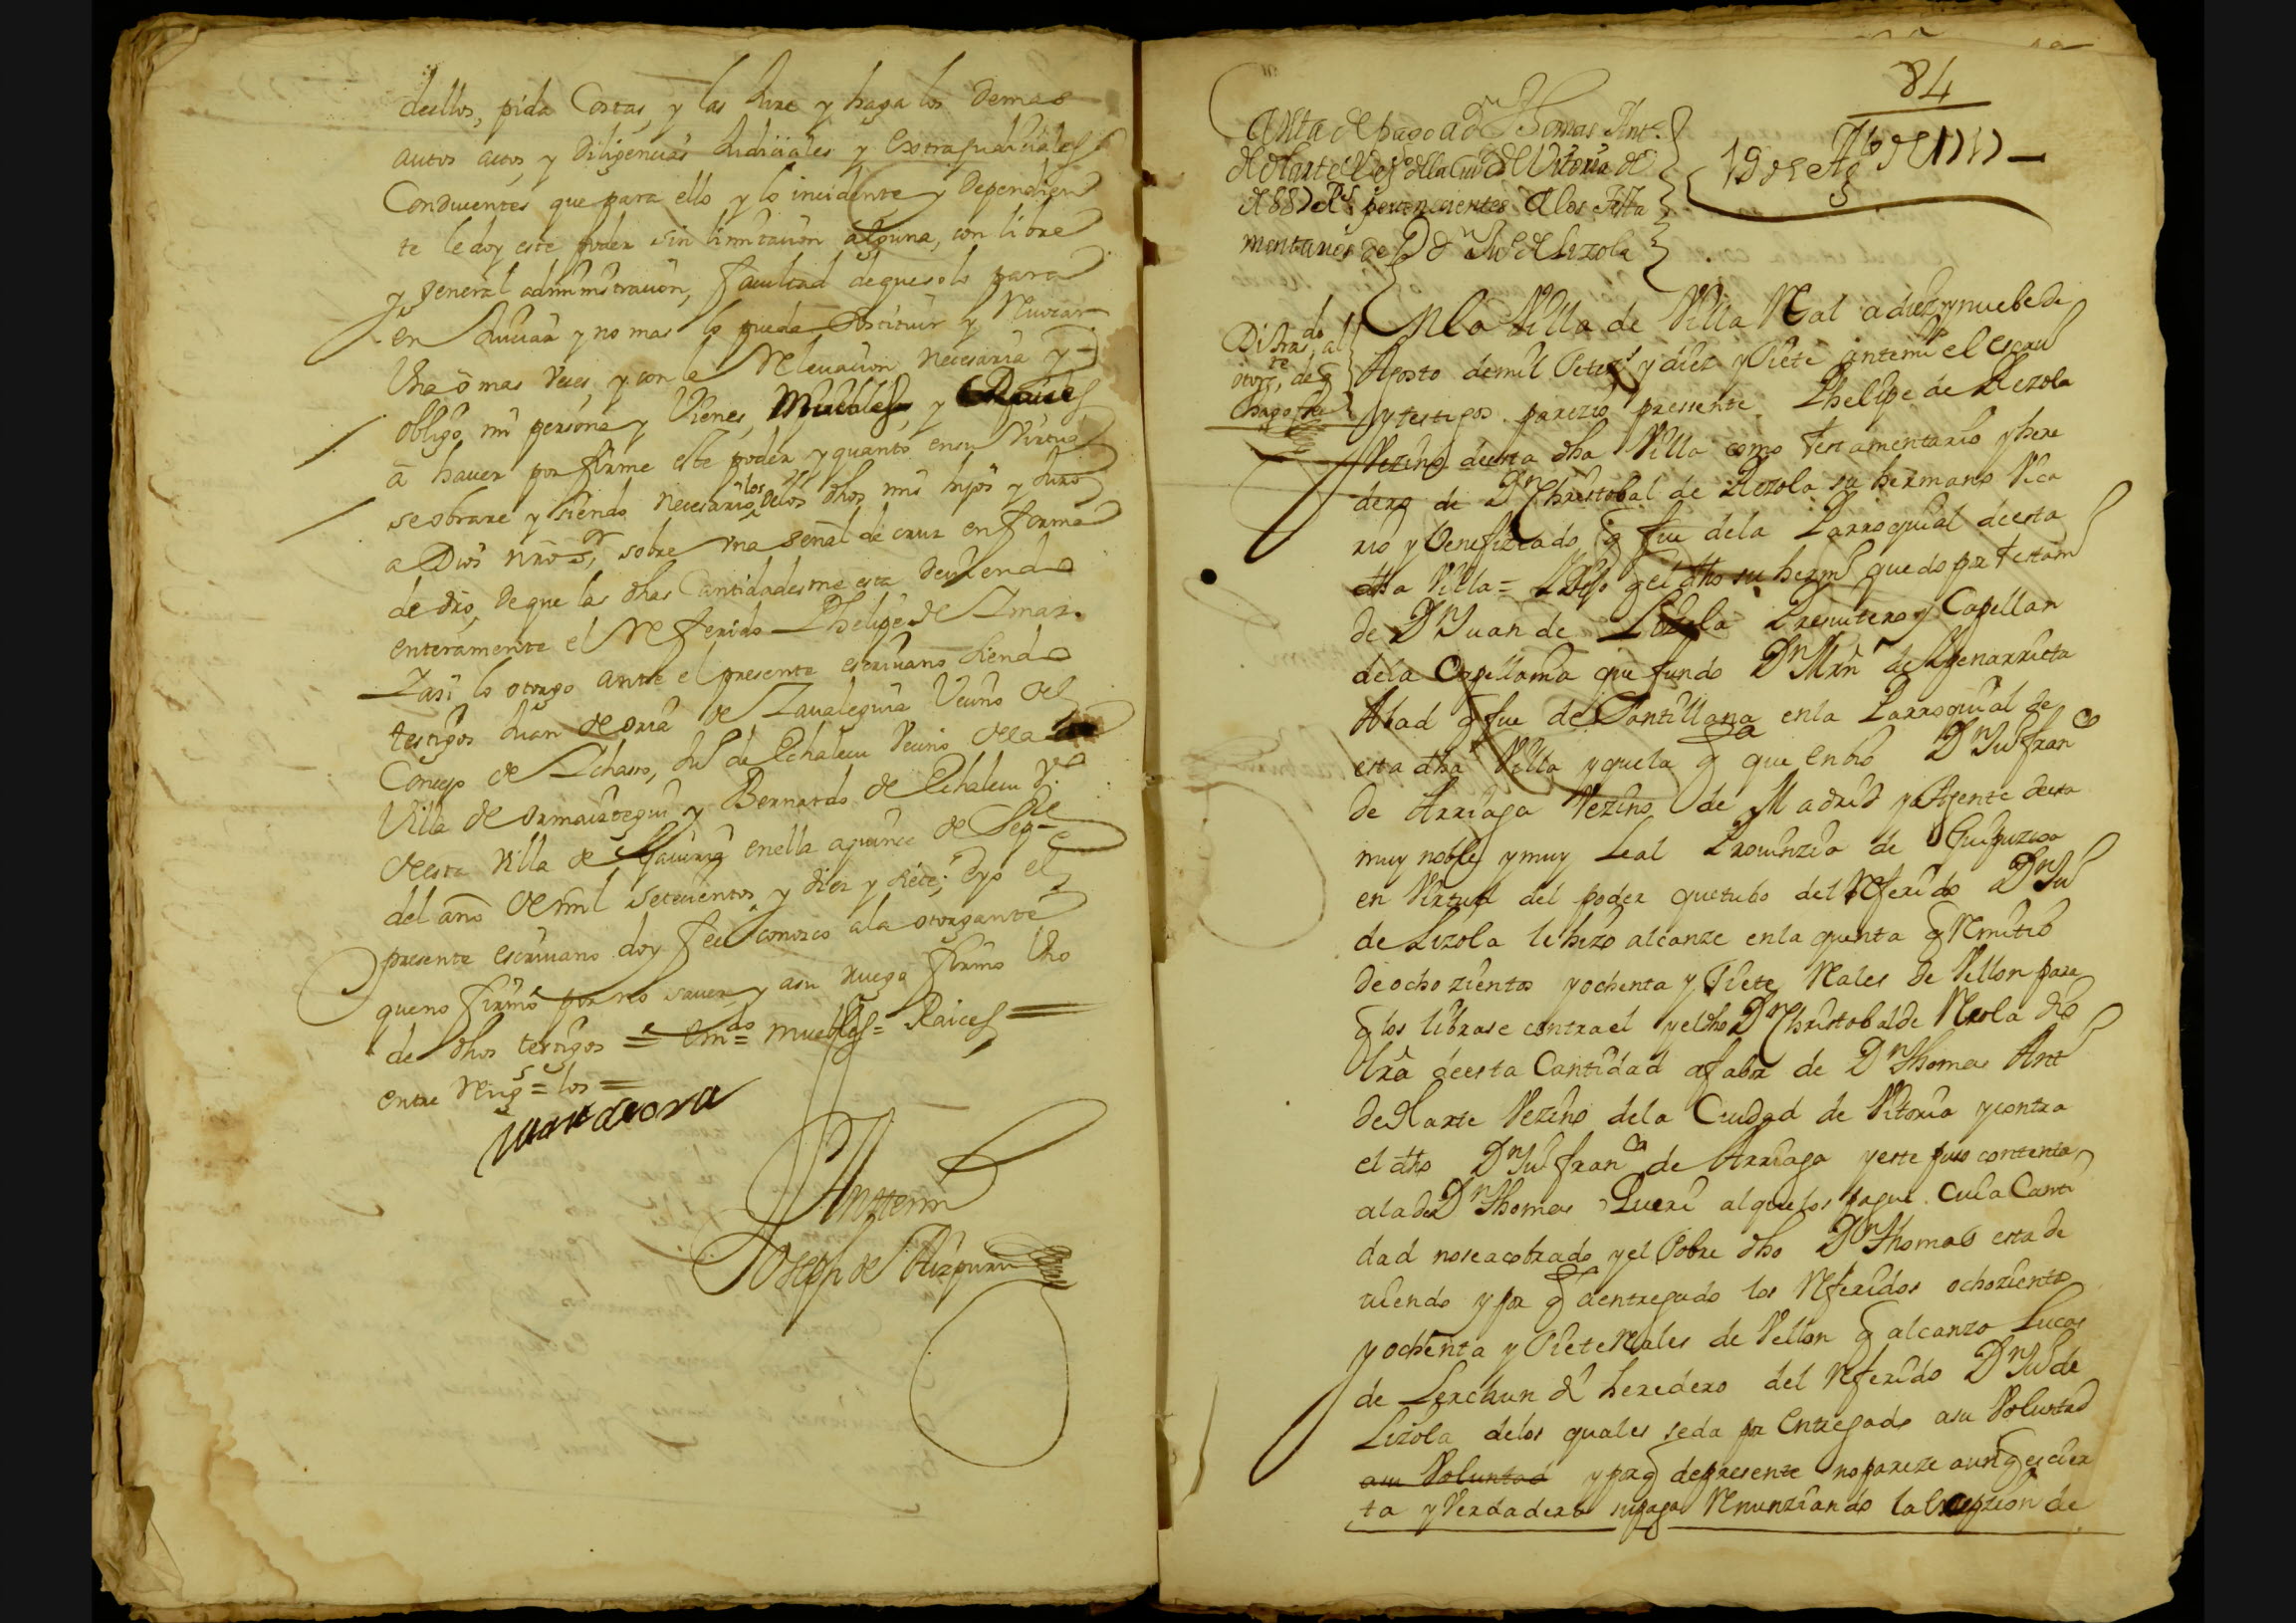 dellos, pida Costas, y las Jure y haga los demas
autos actos, y diligencias Judiciales y Extrajudiciales
Conducentes que para ello y lo incidente y Dependien
te le doy este poder sin limitacion alguna, con libre
y general administracion, facultad de que solo para
en Juiciar y no mas lo pueda sostituir y Revocar
Una ō mas veces, y con la Relevacion necesaria y
obligo mi persona y vienes, Muebles, y Raices
ā haver por firme este poder y quanto en su virtud
se obrare y siendo necesario los de los dhos mis hijos y Juro
a Dios nrō Sr, sobre una señal de cruz en forma
de dro, de que las dhas Cantidades me esta deviendo
enteramente el Referido Phelipe de
Y asi lo otorgo ante el presente escrivano siendo
testigos Juan de oria de Zavaleguia Vecino del
Concejo de Ichaso, Ju de Echaleu Vecino de la
Villa de ormaiztegui y Bernardo de Echaleu Vo
de esta Villa de en ella a quince de Sepre
del año de mil setecientos y diez y siete; E yo el
presente escrivano doy fee conozco a la otorgante
que no firmó por no saver y a su ruego firmo Uno
de dhos testigos = Emdo = muebles = Raices =
entre Rengs = los =
Juan de oria
Antemi
Joseph de Aizpuru
84
Carta de pago a Dn Thomas Anto
de olarte Vezo de la Ciud de Vitoria de
de 887 Rs pertenecientes a los Testa
mentarios de Dn Ju de Lizola
19 de Agto de 1717
En la Villa de Villa Real a diez y nuebe de
Agosto de mil Setezs y diez y Siete ante mi el escrū
y testigos parezio pressente Phelipe de Rezola
Vezino de esta dha Villa como testamentario y here
dero de Dn Christobal de Rezola su hermano Vica
rio y Benefiziado q fue de la Parroquial de esta
dha Villa = Y Dijo q el dho su hermo quedo por testamo
de Dn Juan de Lizola Presvitero y Capellan
de la Capellania que fundo Dn Mrn de Ypenarrieta
Abad q fue de Santillana en la Parroquial de
esta dha Villa y que la qta que enbio Dn Ju franco
de Arriaga Vezino de Madrid y Ajente de esta
muy noble y muy Leal Provinzia de Guipuzcoa
en Virtud del poder que tubo del Referido Dn Ju
de Lizola le hizo alcanze en la quenta q Remitio
de ochozientos y ochenta y Siete Reales de Vellon para
q los librase contra el y el dho Dn Christobal de Rezola dio
lrā de esta Cantidad a fabor de Dn Thomas Anto
de olarte Vezino de la Ciudad de Vitoria y contra
el dho Dn Ju franco de Arriaga y este puso contenta
a la de Dn Thomas Queri al que los pague. Cuia Canti
dad no se a cobrado y el Sobre dho Dn Thomas esta de
viendo y por qta a entregado los Referidos ochozientos
y ochenta y Siete Reales de Vellon q alcanzo Lucas
de Lerchun dl heredero del Referido Dn Ju de
Lizola de los quales se da por Entregado a su Voluntad
a su Voluntad y porq de presente no pareze aunq es cier
ta y Verdadera su paga Renunziando la Exepzion de